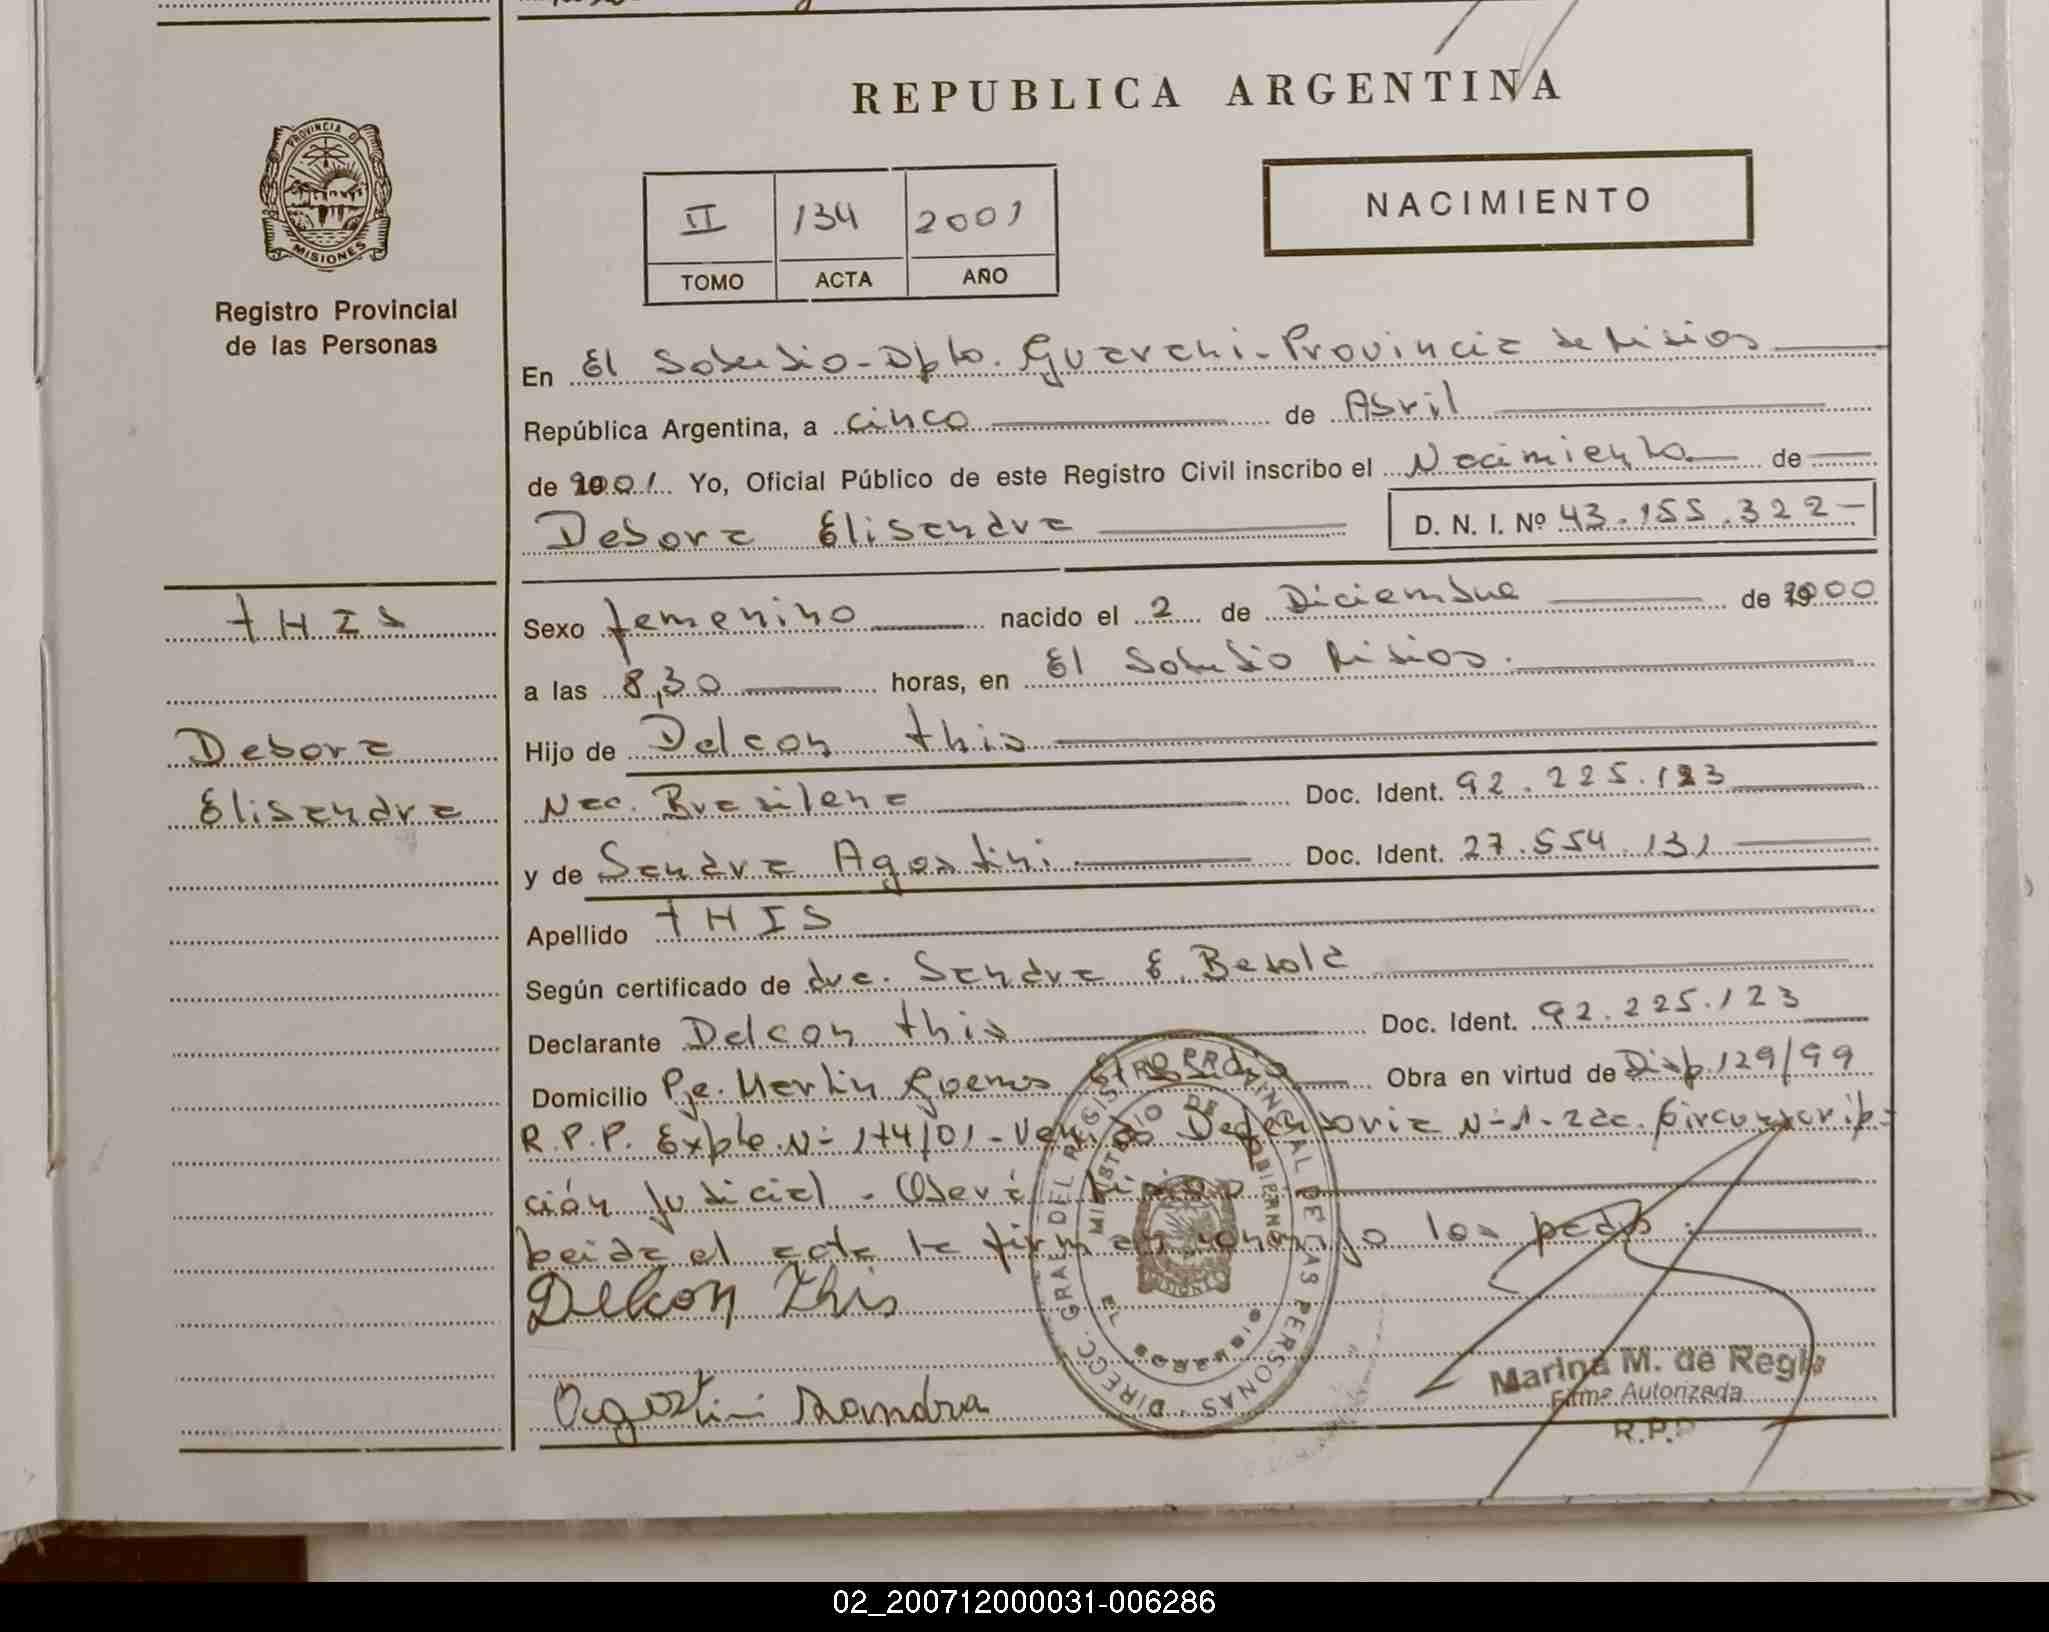 REPUBLICA ARGENTINA
PROVINCIA DE MISIONES
Registro Provincial
de las Personas
II 134 2001
TOMO ACTA AÑO
NACIMIENTO
En El Soberbio - Dpto. Guarani - Provincia de Misios
República Argentina, a cinco de Abril
de 2001 Yo, Oficial Público de este Registro Civil inscribo el Nacimiento de
Debora Elisandra D. N. I. Nº 43.155.322-
tHIS
Debora
Elisandra
Sexo femenino nacido el 2 de Diciembre de 2000
a las 8,30 horas, en El Soberbio Misios.
Hijo de Delcon this
Nac. Brasilena Doc. Ident. 92.225.123
y de Sandra Agostini. Doc. Ident. 27.554.131
Apellido tHIS
Según certificado de dra. Sandra E. Besold
Declarante Delcon this Doc. Ident. 92.225.123
Domicilio Pje. Martin Guemes Obra en virtud de Disp. 129/99
R.P.P. Expte. Nº 174/01 - Defensoria Nº 1 - 2da. Circunscrip=
ción Judicial - Oberá
Leida el acta la firman conmigo los padres.
Delcon This
Agostini Sandra
DIRECC. GRAL DEL REGISTRO PROVINCIAL DE LAS PERSONAS
MINISTERIO DE GOBIERNO
EL SOBERBIO
MISIONES
Marina M. de Regis
Firma Autorizada
R.P.P
02_200712000031-006286